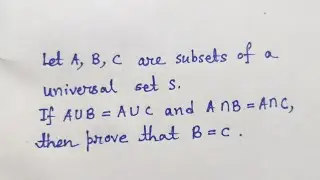 Let A, B, C are subsets of a
universal set S.
If A∪B = A∪C and A∩B = A∩C,
then prove that B = C.